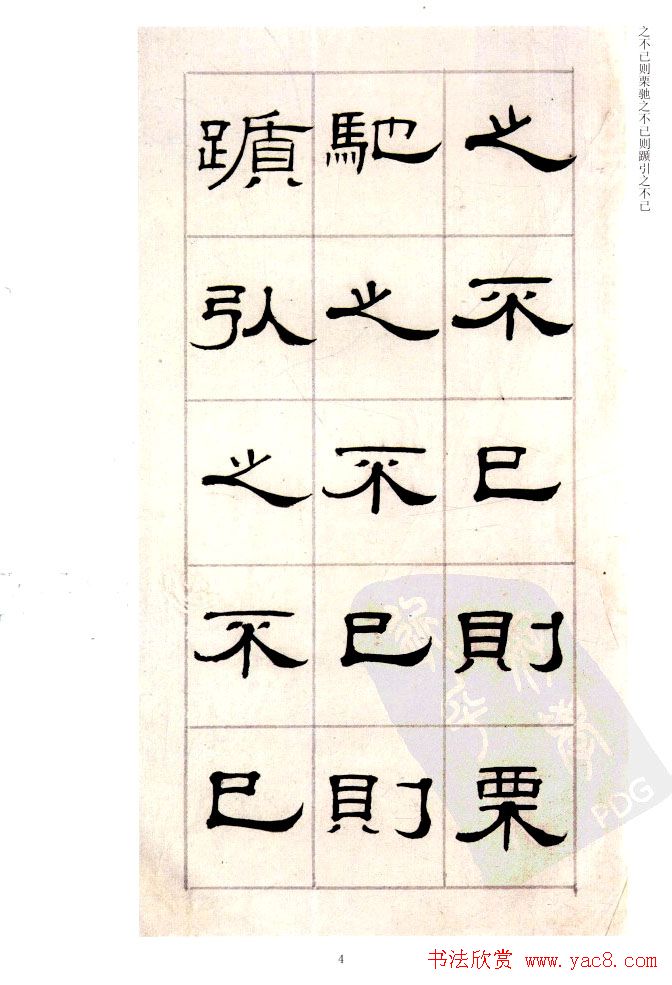 之不已则栗驰之不已则踬引之不已
之不已則栗
馳之不已則
躓引之不已
PDG
4
书法欣赏 www.yac8.com